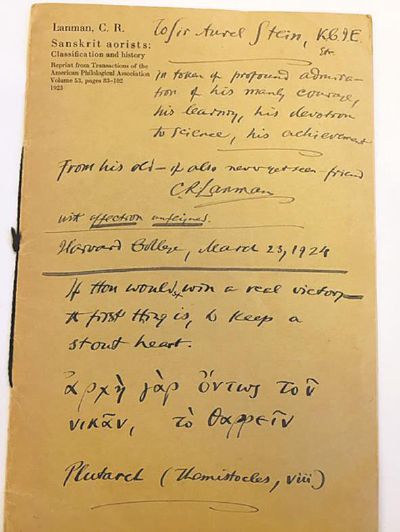 Lanman, C. R.
Sanskrit aorists:
Classification and history
Reprint from Transactions of the
American Philological Association
Volume 53, pages 83–102
1923
To Sir Aurel Stein, K.C.I.E.
in token of profound admira-
tion of his manly courage,
his learning, his devotion
to science, his achievement
From his old – & also never yet seen friend
C R Lanman
with affection unfeigned.
Harvard College, March 23, 1924
If thou wouldst win a real victory –
the first thing is, to keep a
stout heart.
ἀρχὴ γὰρ ὄντως τοῦ
νικᾶν, τὸ θαρρεῖν
Plutarch (Themistocles, viii)